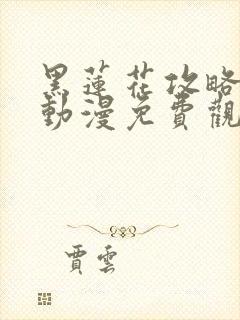 黑蓮花攻略
動漫免費觀
賈雲